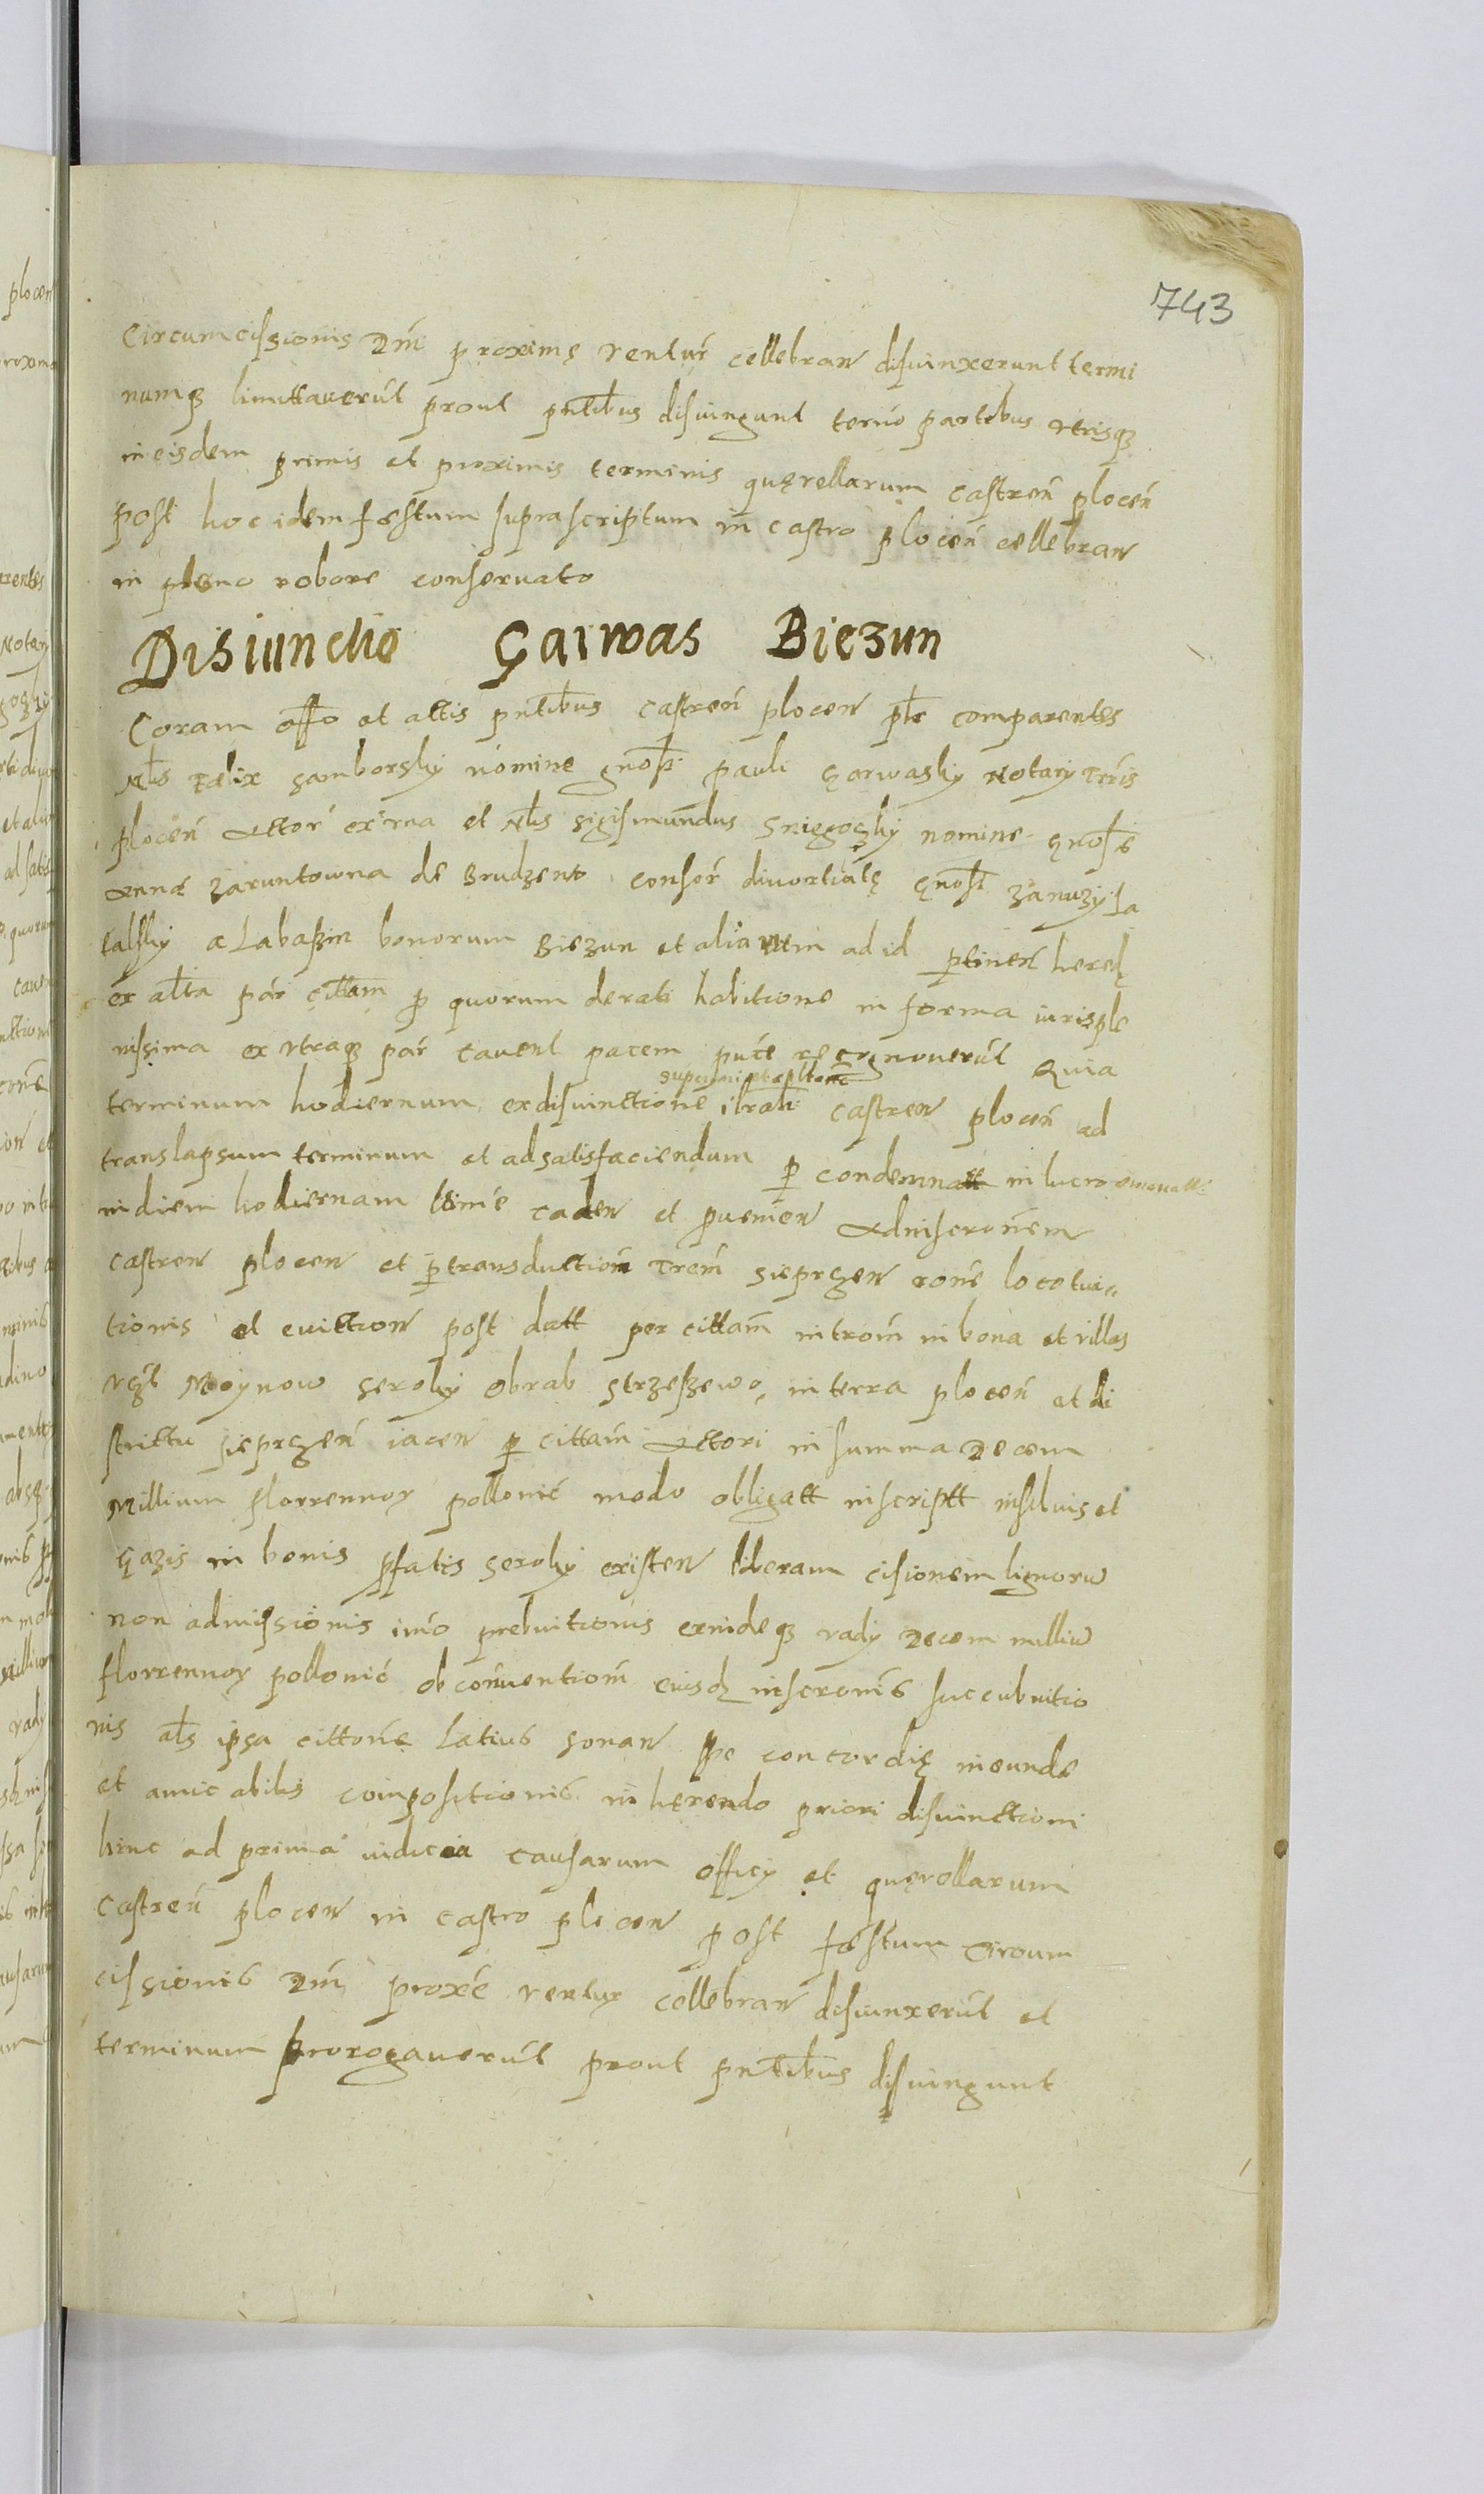 743
Circumcissionis Dnī proximę ventur̄ cellebran̄ disiunxerunt termi
numq₃ limittaverūt prout pntībus disiungunt termō partibus vtrisq₃
in eisdem primis et proximis terminis quęrellarum castren̄ plocen̄
post hoc idem fęstum suprascriptum in castro plocen̄ cellebran̄
in pleno robore conservato
Disiunctio Garwas Biezun
Coram offo et actis pntībus castren̄ plocen̄ plr comparentes
Nbls Fęlix Samborsky nomine gnosi pauli Garwasky Notary Trrīs
plocen̄ Actor̄ ex vna et Nbls Sigismundus Sniegoczky nomine gnose
Annę Zaruntowna de Brudzeno consor̄ divortialę gnosi
talsky a Labaszin bonorum Biezun et aliarum ad id ptinen̄ heręd
ex altā par̄ cittam p quorum de rati habitione in forma iuris ple
nissima ex vtraq₃ par̄ cavent patem recognoverūt Quia
terminum hodiernum ex disiunctione castren̄ plocen̄ ad
translapsum terminum et ad satisfaciendum p condemnatt in lucro
in diem hodiernam caden̄ et pvenien̄
castren̄ plocen̄ et p transduction̄ Trrem̄ Sieprczen̄ rone
tionis et eviction̄ post datt per cittam̄ introm̄ in bona et villas
vczt Moynow Seroky Obrab Strzeszewo in terra plocen̄ et di
strictu Sieprczen̄ iacen̄ p cittam̄ Actori in summa Decem
Millium florrennor pollonic̄ modo obligatt inscriptt in siluis et
Gazis in bonis pfatis Seroky existen̄ liberam cisionem lignorū
non admissionis imō prebuitionis exindeq₃ vady Decem milliū
florrennor pollonic̄ ob conventiom̄ eiusd inscronis succubuitio
nis als ipsa cittone latius sonan̄ spe concordię ineunde
et amicabilis compositionis inherendo priori disiunctioni
hinc ad prima iudicia causarum officy et quęrellarum
castren̄ plocen̄ in castro plocen̄ post fęstum Circum
cissionis Dnī proxe ventur cellebran̄ disiunxerūt et
terminum prorogaverūt prout pntībus disiungunt